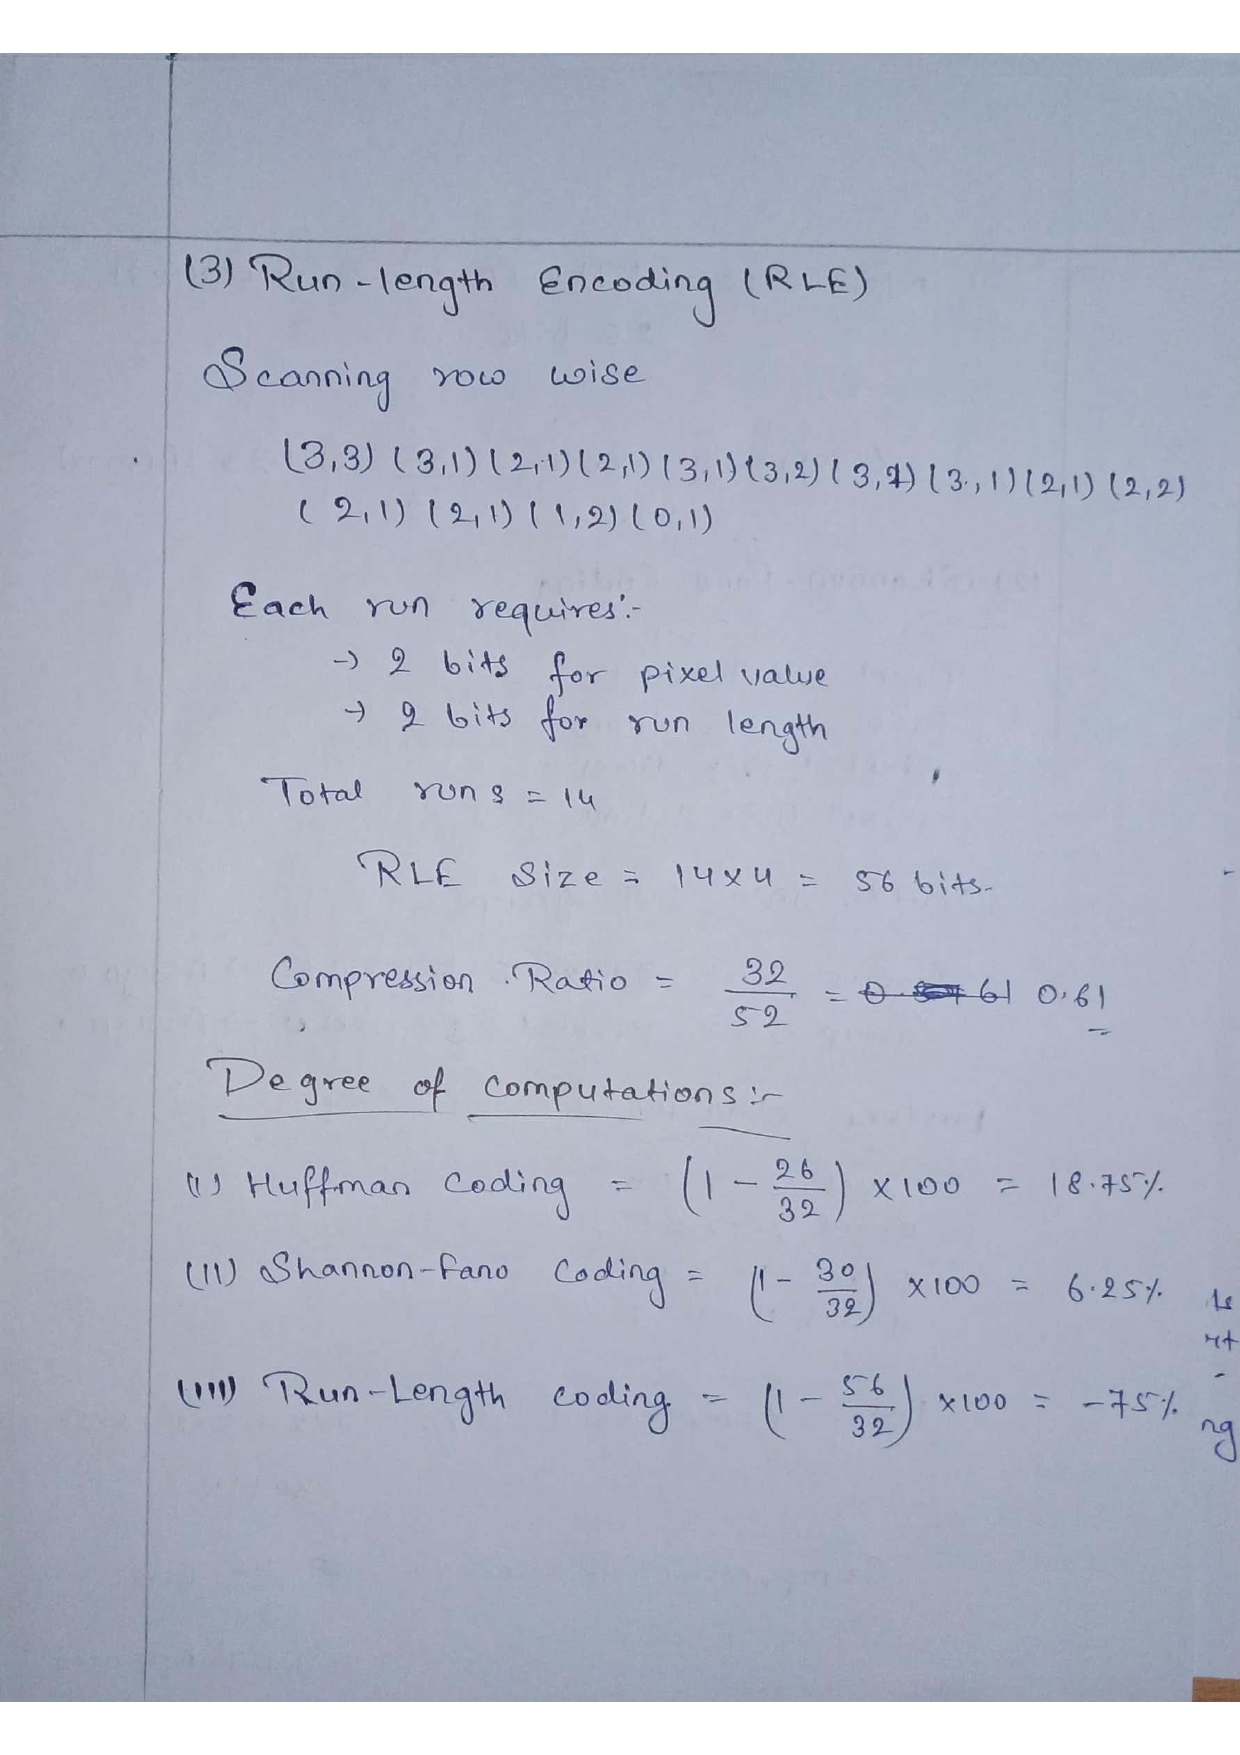 (3) Run-length Encoding (RLE)
Scanning row wise
(3,3) (3,1) (2,1) (2,1) (3,1) (3,2) (3, ) (3,1) (2,1) (2,2)
(2,1) (2,1) (1,2) (0,1)
Each run requires:-
→ 2 bits for pixel value
→ 2 bits for run length
Total runs = 14
RLE Size = 14x4 = 56 bits.
Compression Ratio = 32/52 = 0.61
Degree of computations:-
(i) Huffman Coding = (1 - 26/32) x100 = 18.75%
(ii) Shannon-Fano Coding = (1 - 30/32) x100 = 6.25%
(iii) Run-Length coding = (1 - 56/32) x100 = -75%
ng